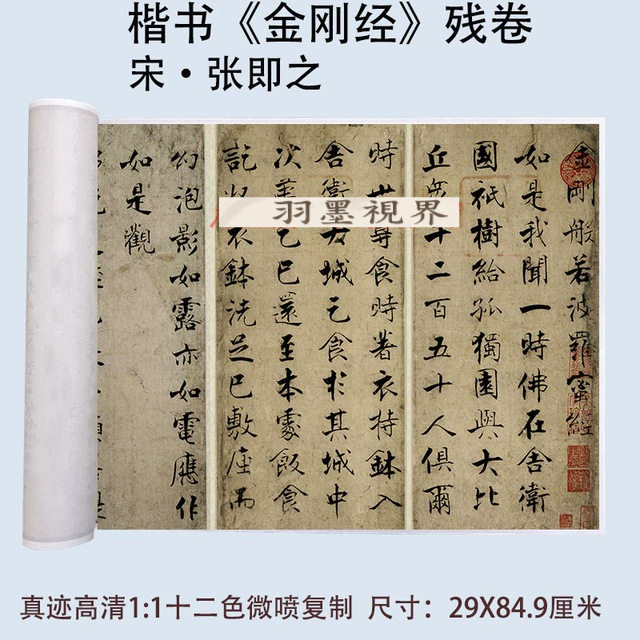 楷书《金刚经》残卷
宋·张即之
金剛般若波羅蜜經
如是我聞一時佛在舍衛
國祇樹給孤獨園與大比
丘衆千二百五十人俱爾
時世尊食時著衣持鉢入
舍衛大城乞食於其城中
次第乞已還至本處飯食
訖收衣鉢洗足已敷座而
幻泡影如露亦如電應作
如是觀
羽墨視界
真迹高清1:1十二色微喷复制 尺寸：29X84.9厘米